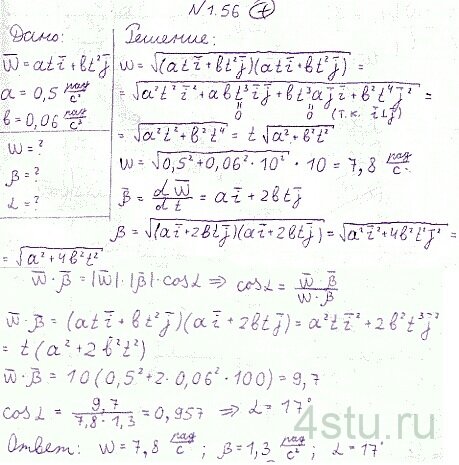 №1.56 (+)
Дано:
w̄ = at ī + bt² j̄
a = 0,5 рад/с²
b = 0,06 рад/с³
w = ?
β = ?
α = ?
Решение:
w = √((at ī + bt² j̄)(at ī + bt² j̄)) =
= √(a²t² ī² + abt³ ī j̄ + bt³ a j̄ ī + b²t⁴ j̄²) =
0 0 (т.к. ī⊥j̄)
= √(a²t² + b²t⁴) = t √(a² + b²t²)
w = √(0,5² + 0,06² · 10²) · 10 = 7,8 рад/с.
β̄ = dw̄/dt = a ī + 2bt j̄
β = √((a ī + 2bt j̄)(a ī + 2bt j̄)) = √(a² ī² + 4b²t² j̄²) =
= √(a² + 4b²t²)
w̄ · β̄ = |w̄| · |β̄| · cosα ⇒ cosα = w̄ · β̄ / w · β
w̄ · β̄ = (at ī + bt² j̄)(a ī + 2bt j̄) = a²t ī² + 2b²t³ j̄²
= t(a² + 2b²t²)
w̄ · β̄ = 10(0,5² + 2 · 0,06² · 100) = 9,7
cosα = 9,7 / 7,8 · 1,3 = 0,957 ⇒ α = 17°
Ответ: w = 7,8 рад/с; β = 1,3 рад/с²; α = 17°
4stu.ru